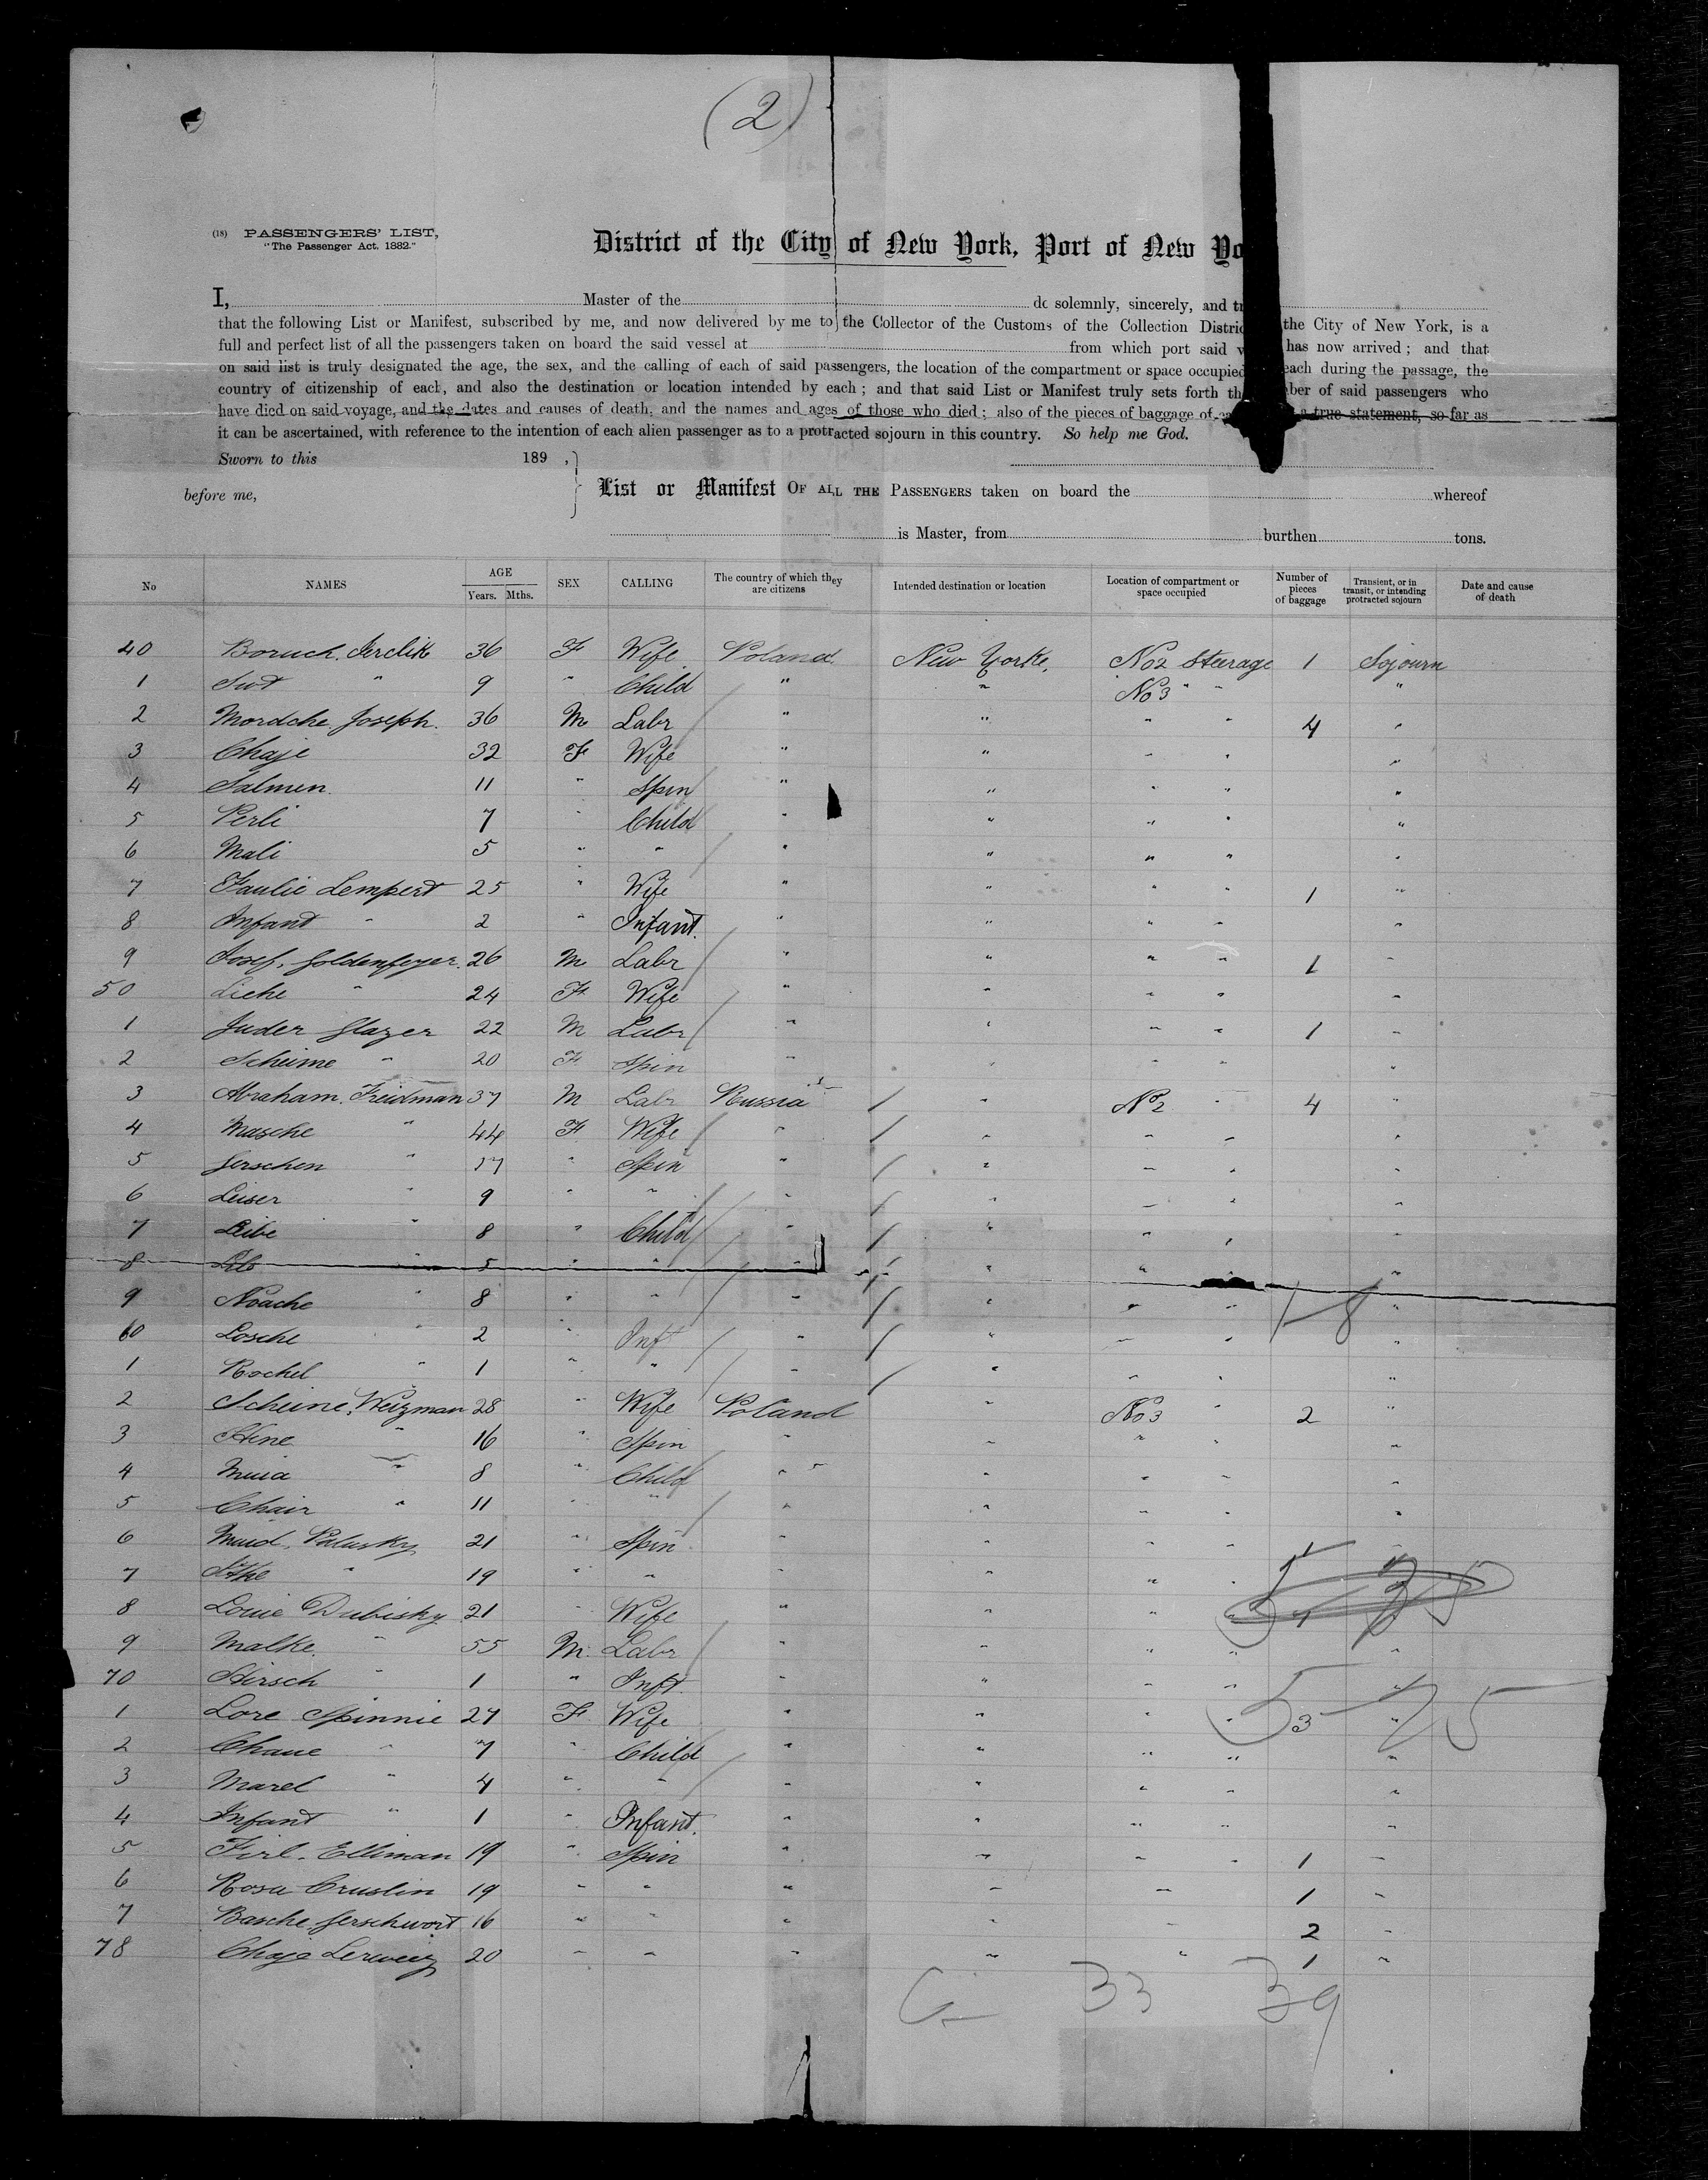 (2)
(18) PASSENGERS' LIST,
"The Passenger Act, 1882."
District of the City of New York, Port of New Yo
I, Master of the do solemnly, sincerely, and tr
that the following List or Manifest, subscribed by me, and now delivered by me to the Collector of the Customs of the Collection Distric the City of New York, is a
full and perfect list of all the passengers taken on board the said vessel at from which port said v has now arrived; and that
on said list is truly designated the age, the sex, and the calling of each of said passengers, the location of the compartment or space occupied each during the passage, the
country of citizenship of each, and also the destination or location intended by each; and that said List or Manifest truly sets forth th ber of said passengers who
have died on said voyage, and the dates and causes of death, and the names and ages of those who died; also of the pieces of baggage of a true statement, so far as
it can be ascertained, with reference to the intention of each alien passenger as to a protracted sojourn in this country. So help me God.
Sworn to this 189 ,
before me,
List or Manifest OF ALL THE PASSENGERS taken on board the whereof
is Master, from burthen tons.
No NAMES AGE Years. Mths. SEX CALLING The country of which they are citizens Intended destination or location Location of compartment or space occupied Number of pieces of baggage Transient, or in transit, or intending protracted sojourn Date and cause of death
40 Boruch 36 F Wife Poland New Yorke, No2 Steerage 1 Sojourn
1 " 9 " Child " " No3 " " "
2 Mordche Joseph 36 M Labr " " " " 4 "
3 Chaje 32 F Wife " " " " "
4 Salmen 11 " Spin " " " " "
5 Perli 7 " Child " " " " "
6 Mali 5 " " " " " " "
7 Lempert 25 " Wife " " " " 1 "
8 Infant " 2 " Infant. " " " " "
9 Josef 26 M Labr " " " " 1 "
50 Liche " 24 F Wife " " " " "
1 Juder Glazer 22 M Labr " " " " 1 "
2 Scheime " 20 F Spin " " " " "
3 Abraham Freidman 37 M Labr Russia " No2 " 4 "
4 Masche " 44 F Wife " " " " "
5 Gerschen " 17 " Spin " " " " "
6 Leiser " 9 " " " " " " "
7 Leibe " 8 " Child " " " " "
8 " 5 " " " " " " "
9 Noache " 8 " " " " " " 1-8 "
60 Losche " 2 " Inft " " " " "
1 Rochel " 1 " " " " " " "
2 Scheine Weizman 28 " Wife Poland " No3 " 2 "
3 Hine " 16 " Spin " " " " "
4 " 8 " Child " " " " "
5 Chair " 11 " " " " " " "
6 21 " Spin " " " " "
7 " 19 " " " " " " "
8 Louie Dubisky 21 " Wife " " " " "
9 Malke " 55 M Labr " " " " "
70 Hirsch " 1 " Inft " " " " "
1 Lore Spinnie 27 F Wife " " " " 3 "
2 Chane " 7 " Child " " " " "
3 Marel " 4 " " " " " " "
4 Infant " 1 " Infant. " " " " "
5 Firl Elliman 19 " Spin " " " " 1 "
6 Rosa Cruslin 19 " " " " " 1 "
7 Basche Gerschwort 16 " " " " " 2 "
78 Chaje 20 " " " " " 1 "
33 39